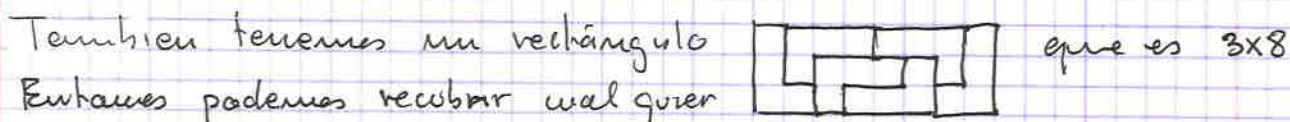 Tambien tenemos un rectángulo que es 3x8
Entonces podemos recubrir cualquier